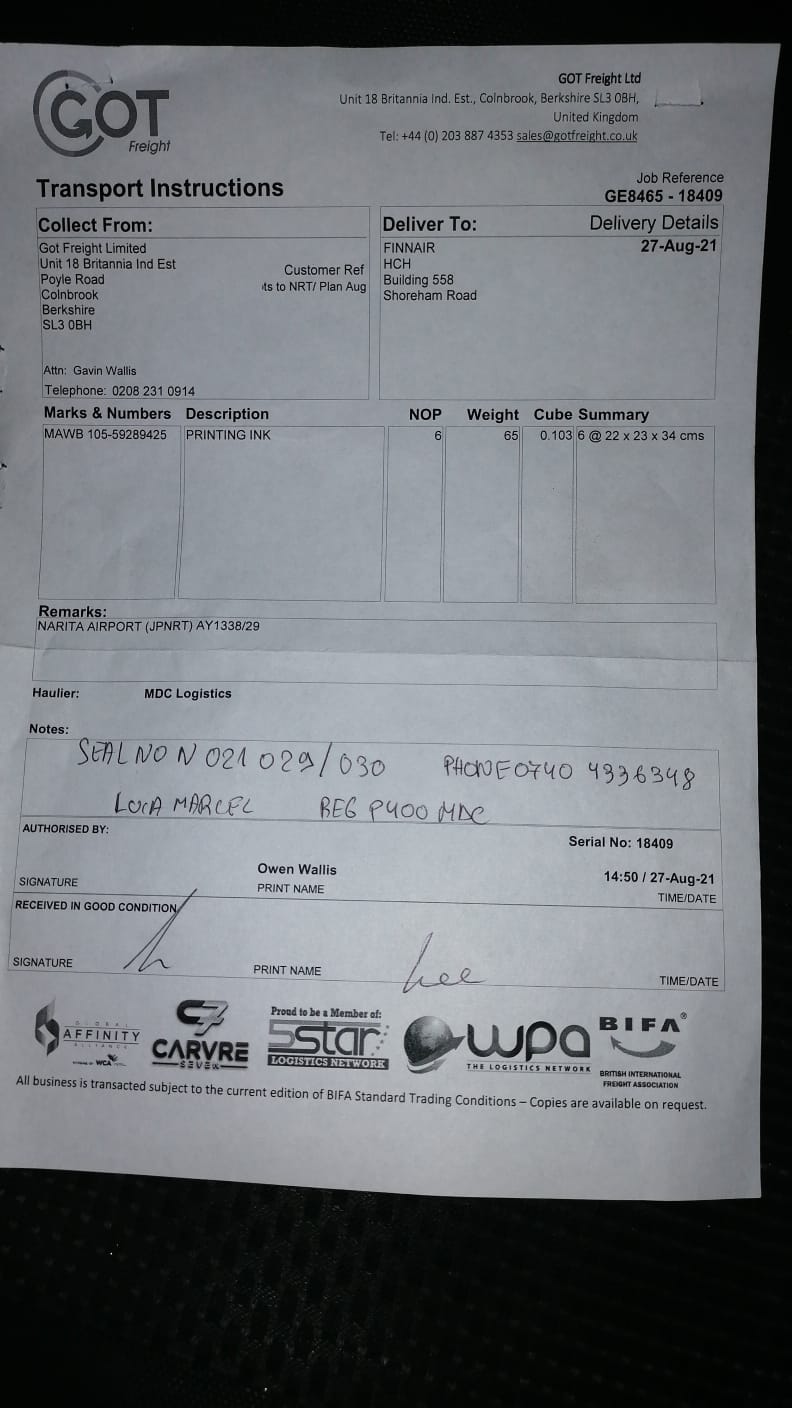 GOT
Freight
GOT Freight Ltd
Unit 18 Britannia Ind. Est., Colnbrook, Berkshire SL3 0BH,
United Kingdom
Tel: +44 (0) 203 887 4353 sales@gotfreight.co.uk
Transport Instructions
Job Reference
GE8465 - 18409
Collect From:
Got Freight Limited
Unit 18 Britannia Ind Est
Poyle Road
Colnbrook
Berkshire
SL3 0BH
Customer Ref
ts to NRT/ Plan Aug
Attn: Gavin Wallis
Telephone: 0208 231 0914
Deliver To:
Delivery Details
27-Aug-21
FINNAIR
HCH
Building 558
Shoreham Road
Marks & Numbers Description NOP Weight Cube Summary
MAWB 105-59289425 PRINTING INK 6 65 0.103 6 @ 22 x 23 x 34 cms
Remarks:
NARITA AIRPORT (JPNRT) AY1338/29
Haulier: MDC Logistics
Notes:
SEAL NO N 021 029/030 PHONE 0740 4336348
LUCA MARCEL REG P400 MDC
AUTHORISED BY:
Serial No: 18409
Owen Wallis 14:50 / 27-Aug-21
SIGNATURE PRINT NAME TIME/DATE
RECEIVED IN GOOD CONDITION
Lee
SIGNATURE PRINT NAME TIME/DATE
GLOBAL
AFFINITY
ALLIANCE
WCA
C7
CARVRE
SEVEN
Proud to be a Member of:
5star
LOGISTICS NETWORK
wpa
THE LOGISTICS NETWORK
BIFA®
BRITISH INTERNATIONAL
FREIGHT ASSOCIATION
All business is transacted subject to the current edition of BIFA Standard Trading Conditions – Copies are available on request.